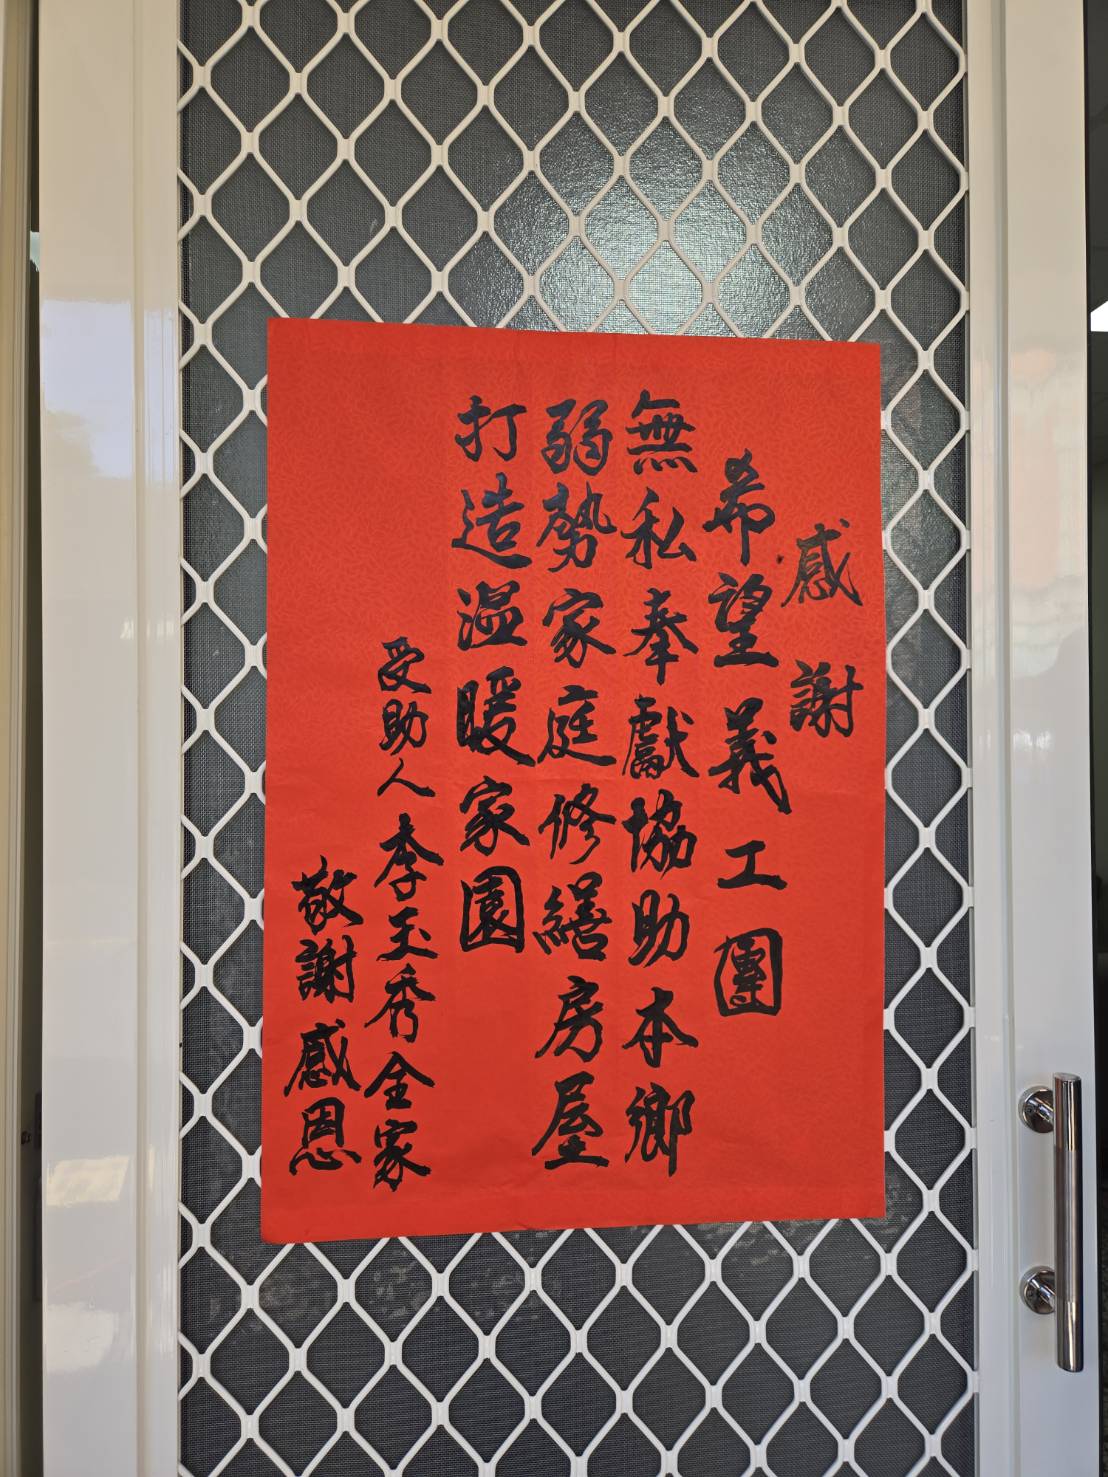 感謝
希望義工團
無私奉獻協助本鄉
弱勢家庭修繕房屋
打造溫暖家園
受助人李玉秀全家
敬謝感恩